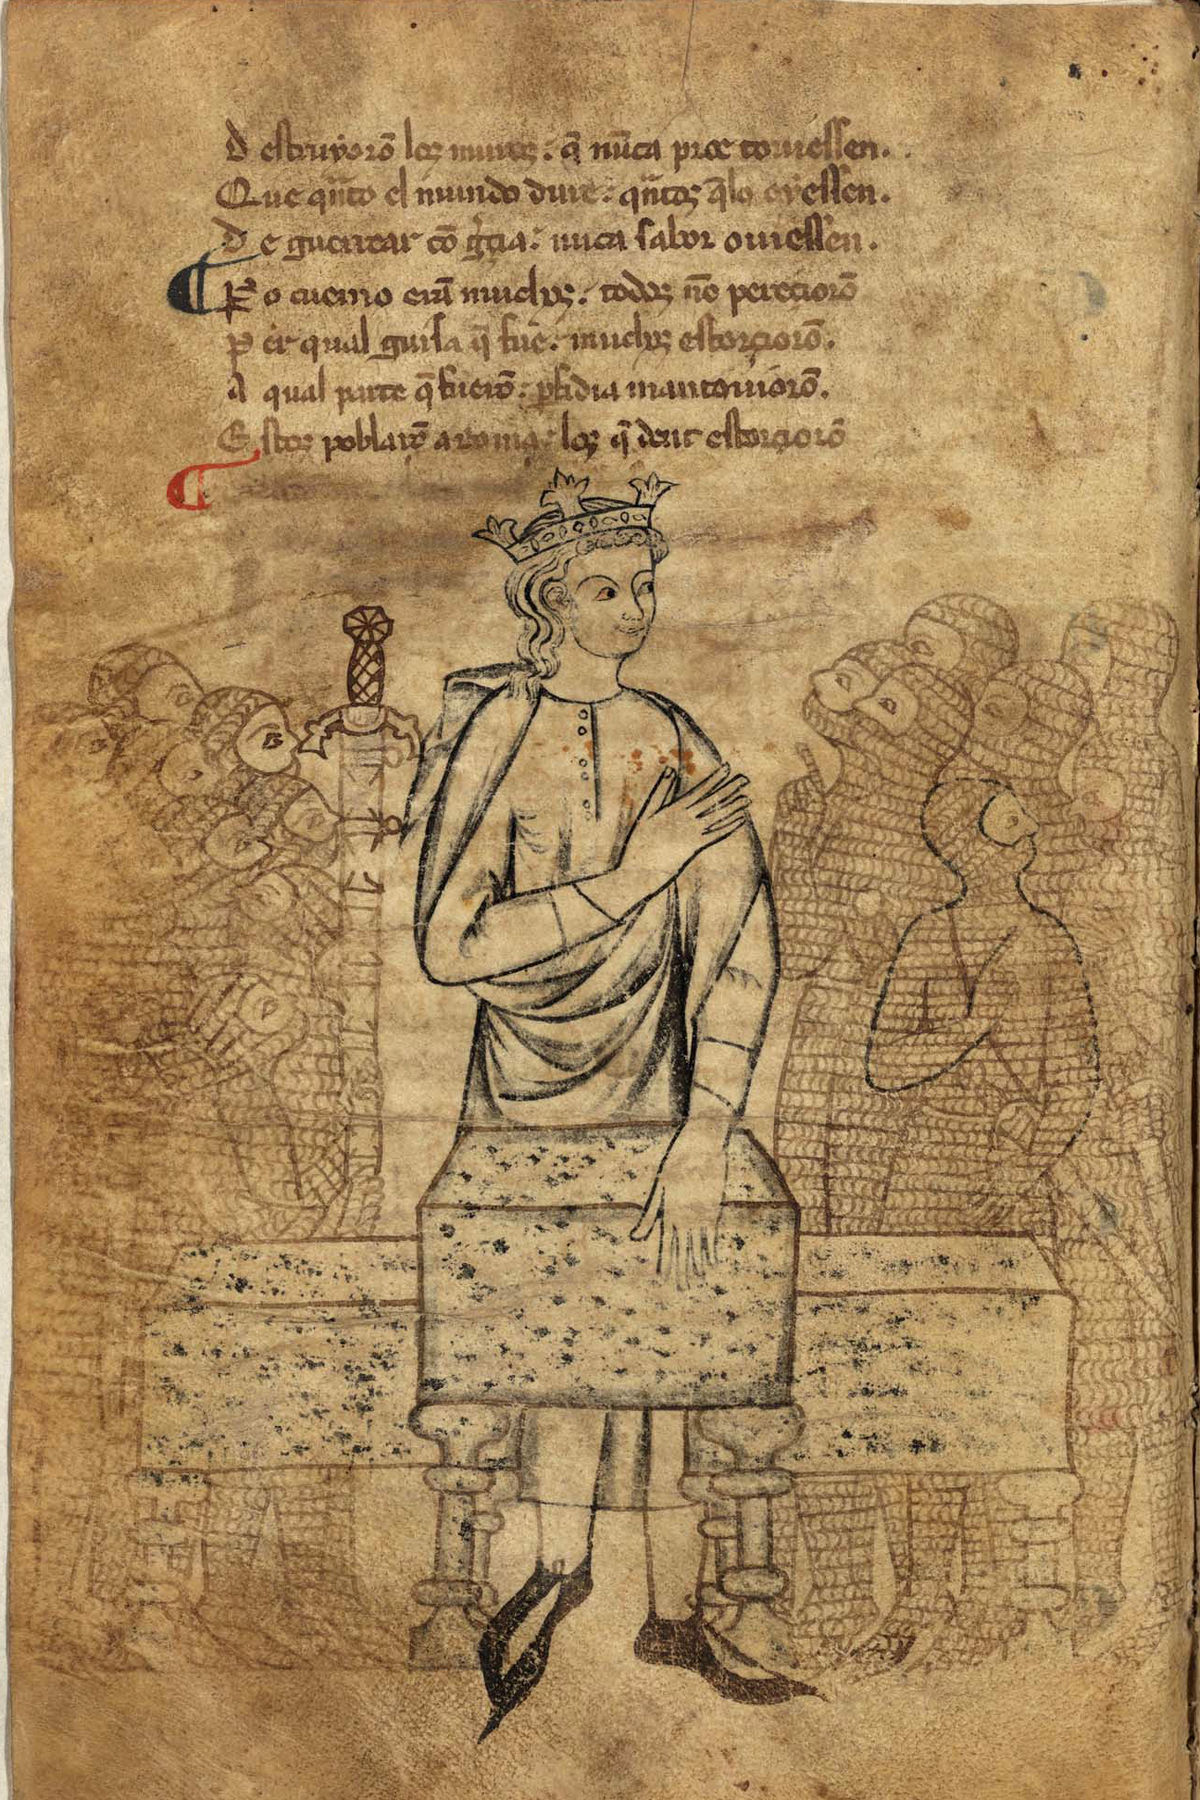 D estruyorō los muros: q̄ nūca proe touiessen.
Que qͣnto el mundo dure: qͣntos q̄lo oyessen.
D e guerrear cō greçia: nūca sabor ouiessen.
¶ P̄ o cuemo erā muchos: todos nō pereçiorō
P or qual guisa q̄ fue: muchos estorçiorō.
A qual parte q̄ fuerō: ꝑfidia mantouiorō.
E stos poblarō a roma: los q̄ dent estorçiorō
¶